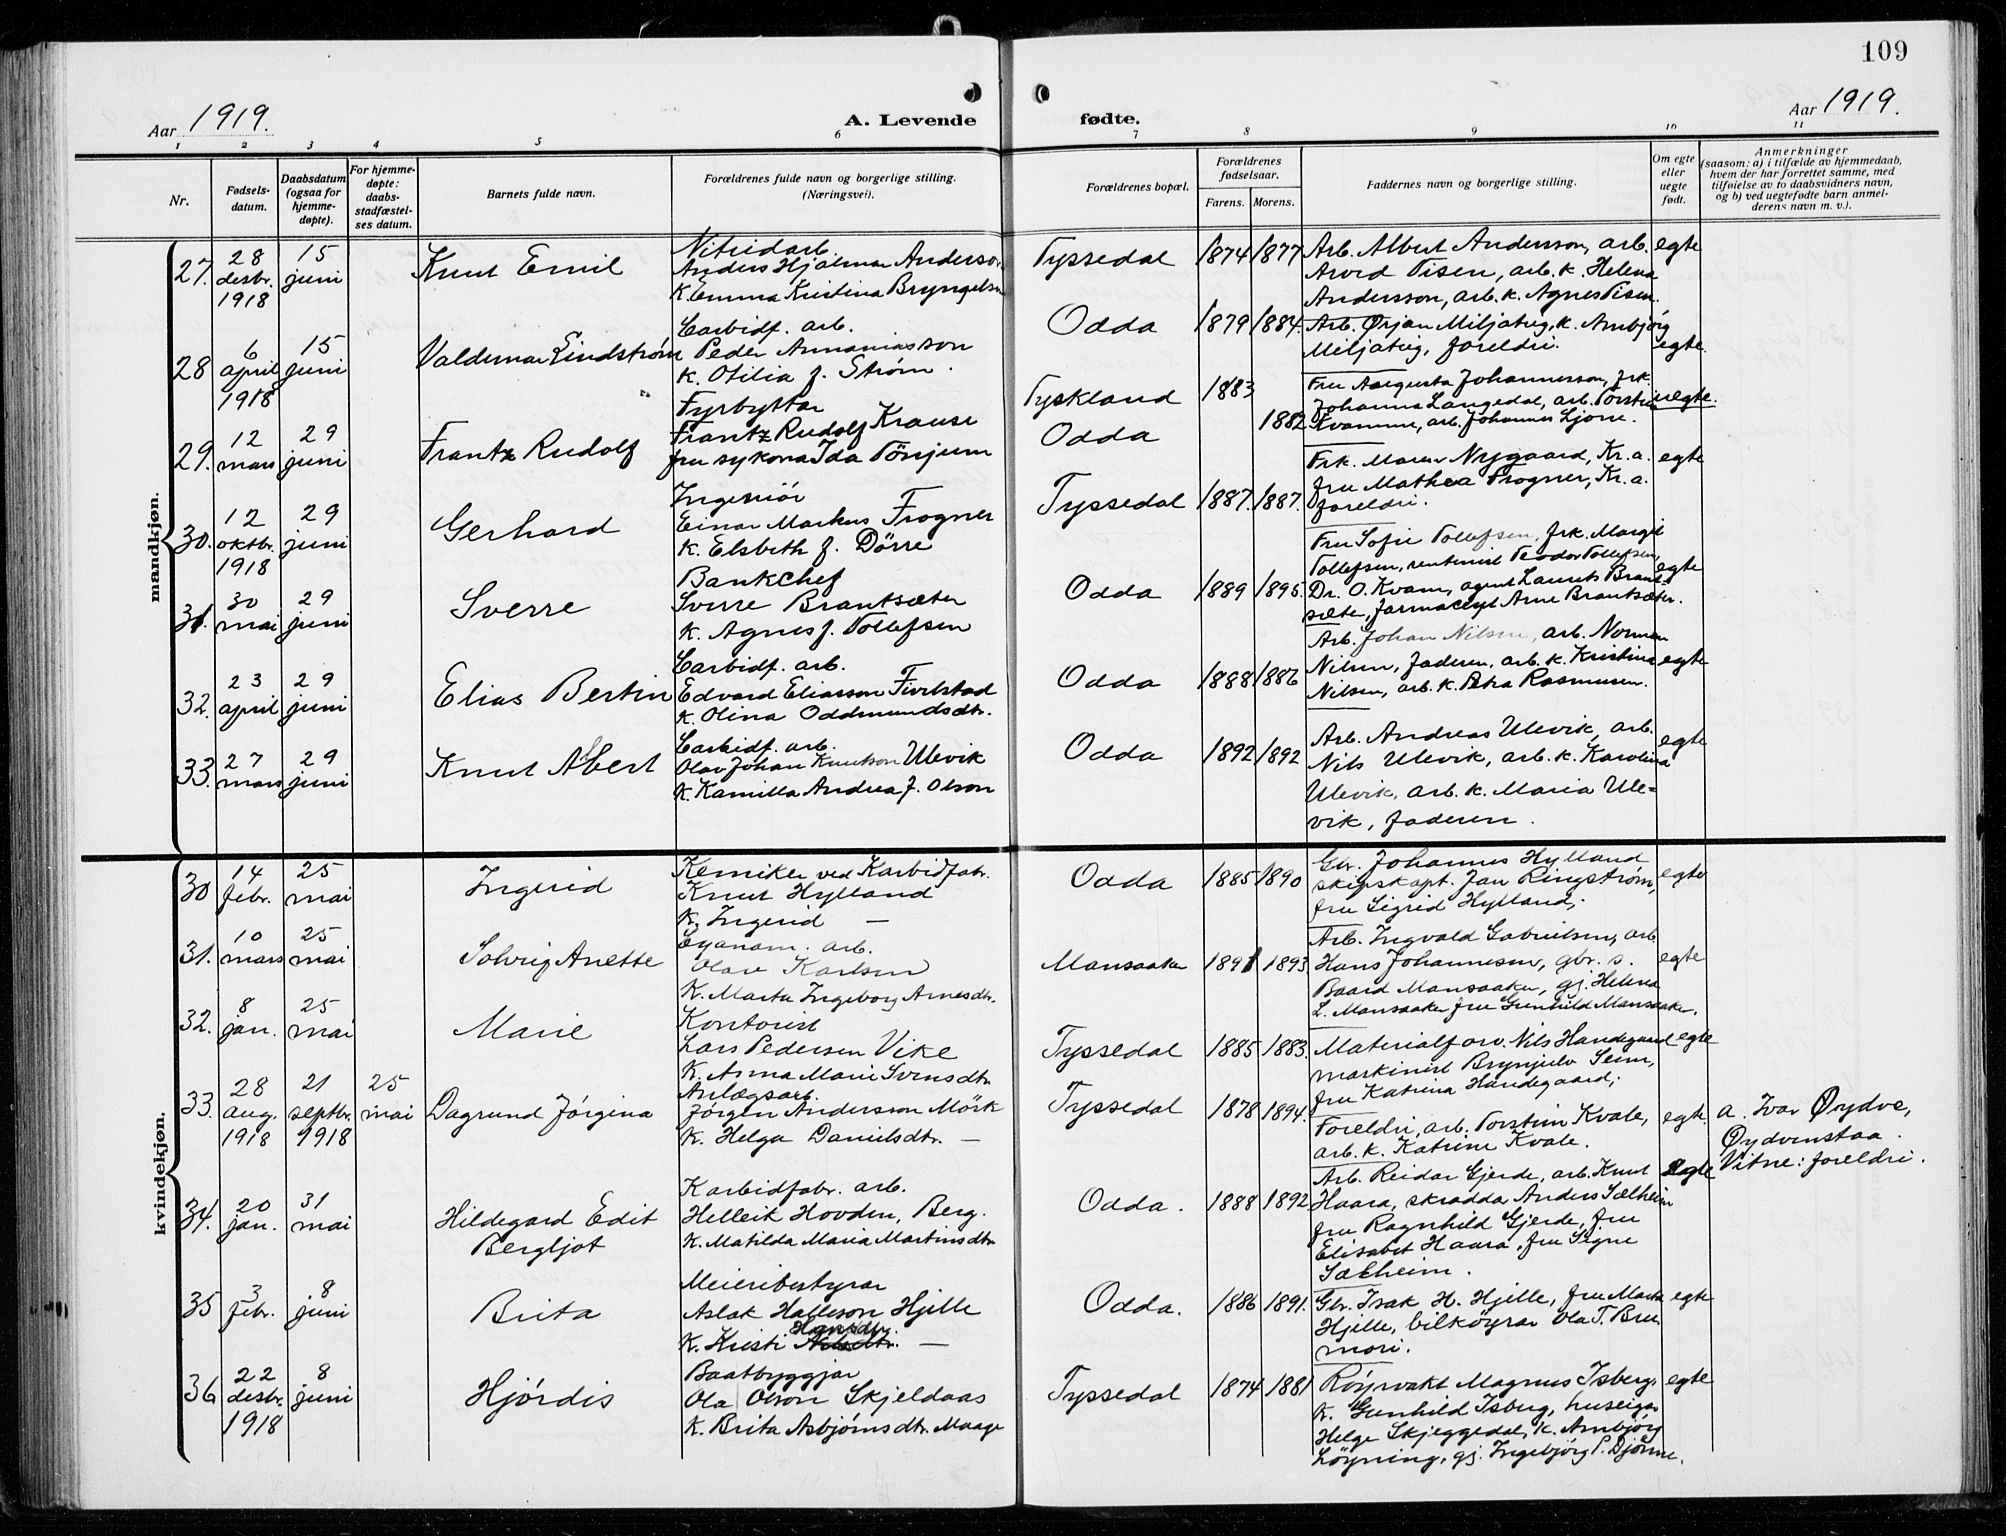 109
Aar 1919.
A. Levende fødte.
Aar 1919.
1 2 3 4 5 6 7 8 9 10 11
Nr.
Fødsels-
datum.
Daabsdatum
(ogsaa for
hjemme-
døpte).
For hjemme-
døpte:
daabs-
stadfæstel-
ses datum.
Barnets fulde navn.
Forældrenes fulde navn og borgerlige stilling.
(Næringsvei).
Forældrenes bopæl.
Forældrenes
fødselsaar.
Farens. Morens.
Faddernes navn og borgerlige stilling.
Om egte
eller
uegte
født.
Anmerkninger
(saasom: a) i tilfælde av hjemmedaab,
hvem der har forrettet samme, med
tilføielse av to daabsvidners navn,
og b) ved uegtefødte barn anmel-
derens navn m. v.).
mandkjøn.
27. 28 desbr. 1918
15 juni
Knut Emil
Nitridarb.
Anders Hjalmar Anderson
K. Emma Kristina Bryngelsen
Tyssedal 1874 1877
Arb. Albert Andersson, arb.
Arvid Tisen, arb. k. Helena
Andersson, arb. k. Agnes Tisen.
egte
28 6 april 1918
15 juni
Valdemar Lindstrøm
Carbidf. arb.
Peder Annaniasson
K. Otilia f. Strøm.
Odda 1879 1884.
Arb. Ørjan Miljateig, k. Ambjørg
Miljateig, foreldri.
egte.
29. 12 mars
29 juni
Frantz Rudolf
Fyrbyttar
Frantz Rudolf Krause
fru sykona Ida Tönjum
Tyskland 1883
Odda 1882
Fru Augusta Johannesson, frk.
Johanna Langedal, arb. Torstein
Kvamme, arb. Johannes Ljone.
uegte.
30. 12 oktbr. 1918
29 juni
Gerhard
Ingeniör
Einar Markus Frogner
K. Elsbeth f. Dörre
Tyssedal 1887. 1887.
Frk. Maren Nygaard, Kr. a.
fru Mathea Frogner, Kr. a.
foreldri.
egte
31. 30 mai
29 juni
Sverre
Bankchef
Sverre Brantsæter
K. Agnes f. Tollefsen
Odda 1889 1895.
Fru Sofie Tollefsen, frk. Margit
Tollefsen, rentenist Teodor Tollefsen,
Dr. O. Kvam, agent Laurits Brant-
sæte, farmaceyt Arne Brantsæter.
egte
32. 23 april
29 juni
Elias Bertin
Carbidf. arb.
Edvard Eliasson Fivelstad
K. Olina Oddmundsdtr.
Odda 1888 1886
Arb. Johan Nilsen, arb. Norman
Nilsen, faderen, arb. k. Kristina
Nilsen, arb. k. Petra Rasmusen.
egte
33. 27 mars
29 juni
Knut Albert
Carbidf. arb.
Olav Johan Knutson Ulevik
K. Kamilla Andrea f. Olson
Odda 1892 1892
Arb. Andreas Ulevik, arb.
Nils Ulevik, arb. k. Karolina
Ulevik, arb. k. Maria Ule-
vik, faderen.
egte
kvindekjøn.
30 14 febr.
25 mai
Ingerid
Kemiker ved Karbidfabr.
Knut Hylland
K. Ingerid —
Odda 1885 1890
Gbr. Johannes Hylland
skipskapt. Jan Ringstrøm,
fru Sigrid Hylland,
egte
31. 10 mars
25 mai
Solveig Anette
Cyanam. arb.
Olav Karlsen
K. Marta Ingeborg Arnesdtr.
Mansaaker 1891 1893.
Arb. Ingvald Gabrielsen, arb.
Hans Johannesen, gbr. s.
Baard Mansaaker, gj. Helena
L. Mansaaker fru Gunhild Mansaaker.
egte
32. 8 jan.
25 mai
Marie
Kontorist
Lars Pedersen Vike
K. Anna Marie Svensdtr.
Tyssedal 1885 1883.
Materialforv. Nils Handegaard
markinist Brynjulv Seim,
fru Katrina Handegaard,
egte
33. 28 aug. 1918
21 septbr. 1918
25 mai
Dagrund Jörgina
Anlægsarb.
Jørgen Andersson Mörk
K. Helga Danielsdtr. —
Tyssedal 1878 1894.
Foreldri, arb. Torstein Kvale,
arb. k. Katrine Kvale.
egte.
a. Ivar Øydve,
Øydvenstaa.
Vitne: foreldri.
34. 20 jan.
31 mai
Hildegard Edit
Bergljot
Karbidfabr. arb.
Helleik Hovden, Berg.
K. Matilda Maria Martinsdtr.
Odda. 1888 1892
Arb. Reidar Gjerde, arb. Knut
Haara, skradda Anders Sælheim
fru Ragnhild Gjerde, fru
Elisabet Haara, fru Signe
Sælheim.
egte
35 3 febr.
8 juni
Brita
Meieribestyrar
Aslak Halleson Hjelle
Hansdtr.
K. Kristi —
Odda. 1886 1891.
Gbr. Isak H. Hjelle, fru Marta
Hjelle, bilköyrar Ola T. Bru
mori.
egte
36 22 desbr. 1918
8 juni
Hjördis
Baatbyggjar
Ola Olson Skjeldaas
K. Brita Asbjørnsdtr. Maage
Tyssedal 1874 1881
Röyrvakt Magnus Isberg,
K. Gunhild Isberg, huseigar
Helge Skjeggedal, k. Ambjörg
Löyning, gj. Ingebjörg P. Djønne.
egte